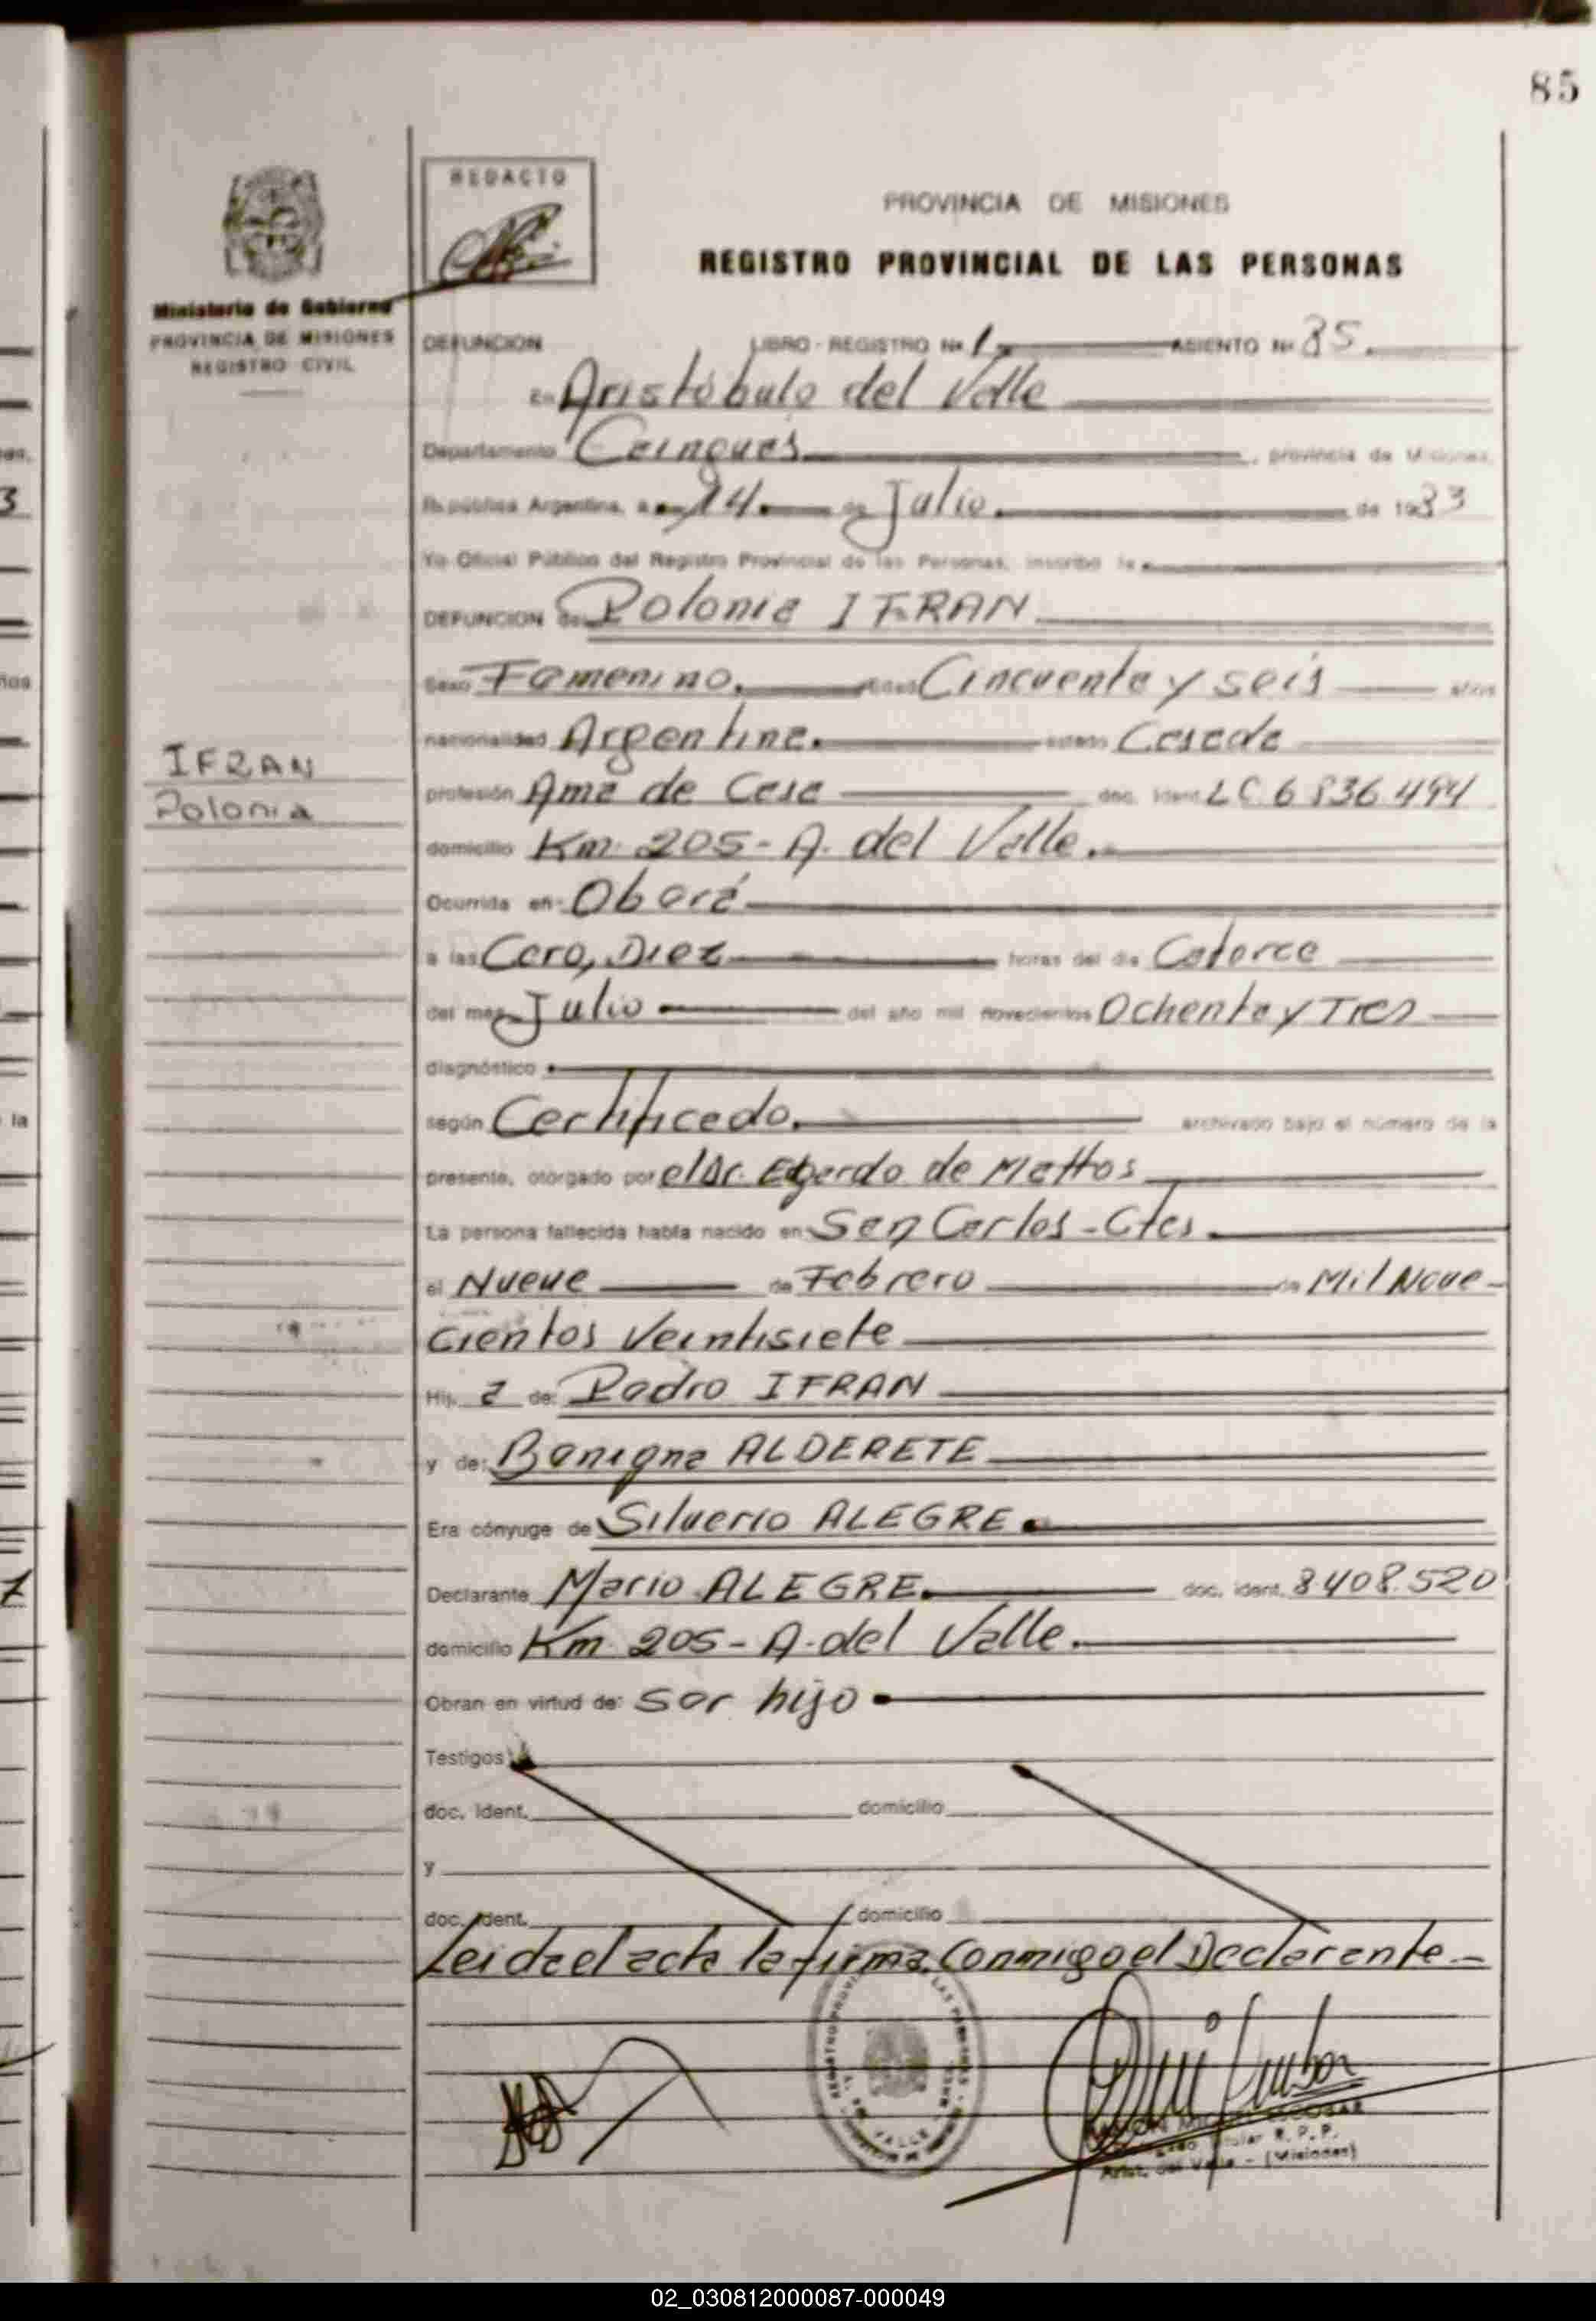 85
REDACTO
PROVINCIA DE MISIONES
REGISTRO PROVINCIAL DE LAS PERSONAS
Ministerio de Gobierno
PROVINCIA DE MISIONES
REGISTRO CIVIL
DEFUNCION LIBRO - REGISTRO Nº 1 ASIENTO Nº 85.
En Aristóbulo del Valle
Departamento Cainguás, provincia de Misiones,
República Argentina, a 14 de Julio de 1983
Yo Oficial Público del Registro Provincial de las Personas, inscribo la
DEFUNCION de Polonia IFRAN
Sexo Femenino. edad Cincuenta y seis años
nacionalidad Argentina. estado Casada
IFRAN
Polonia
profesión Ama de Casa doc. ident. LC 6836494
domicilio Km. 205 - A. del Valle.
Ocurrida en: Oberá
a las Cero, Diez horas del día Catorce
del mes Julio del año mil novecientos Ochenta y Tres
diagnóstico
según Certificado. archivado bajo el número de la
presente, otorgado por el Dr. Egardo de Mattos
La persona fallecida había nacido en San Carlos - Ctes.
el Nueve de Febrero de Mil Nove-
cientos Veintisiete
Hij a de: Pedro IFRAN
y de: Benigna ALDERETE
Era cónyuge de Silverio ALEGRE.
Declarante Mario ALEGRE. doc. ident. 8.408.520
domicilio Km. 205 - A. del Valle.
Obran en virtud de: ser hijo
Testigos
doc. ident. domicilio
y
doc. ident. domicilio
Leida el acta la firma Conmigo el Declarante.-
ESCOBAR
Titular R. P. P.
Arist. del Valle - (Misiones)
02_030812000087-000049